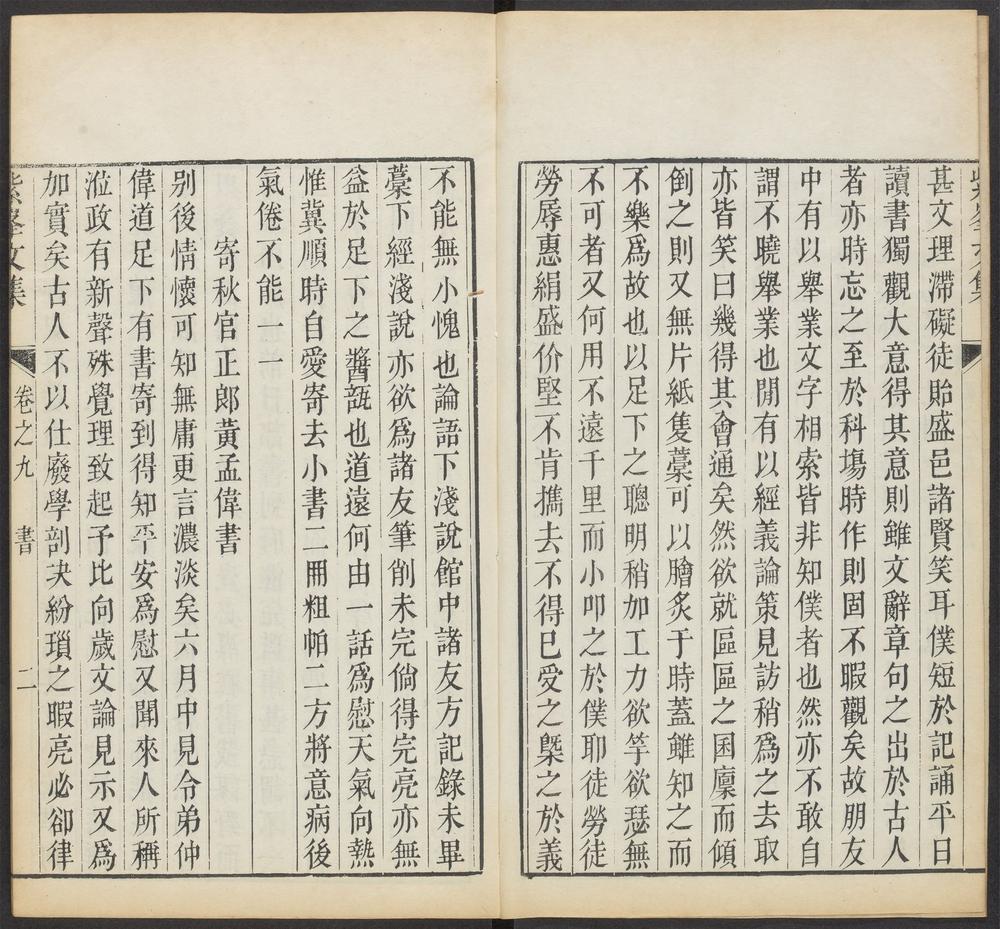 甚文理滯礙徒貽盛邑諸賢笑耳僕短於記誦平日
讀書獨觀大意得其意則雖文辭章句之出於古人
者亦時忘之至於科塲時作則固不暇觀矣故朋友
中有以舉業文字相索皆非知僕者也然亦不敢自
謂不曉舉業也閒有以經義論策見訪稍爲之去取
亦皆笑曰幾得其會通矣然欲就區區之囷廩而傾
倒之則又無片紙隻藁可以膾炙于時蓋雖知之而
不樂爲故也以足下之聰明稍加工力欲竽欲瑟無
不可者又何用不遠千里而小叩之於僕耶徒勞徒
勞辱惠絹盛价堅不肯擕去不得已受之槩之於義
不能無小愧也論語下淺說館中諸友方記錄未畢
藁下經淺說亦欲爲諸友筆削未完倘得完亮亦無
益於足下之醬瓿也道遠何由一話爲慰天氣向熱
惟冀順時自愛寄去小書二冊粗帕二方將意病後
氣倦不能一一
寄秋官正郎黃孟偉書
别後情懷可知無庸更言濃淡矣六月中見令弟仲
偉道足下有書寄到得知平安爲慰又聞來人所稱
涖政有新聲殊覺理致起予比向歲文論見示又爲
加實矣古人不以仕廢學剖決紛瑣之暇亮必卻律
紫峯文集
卷之九
書
二